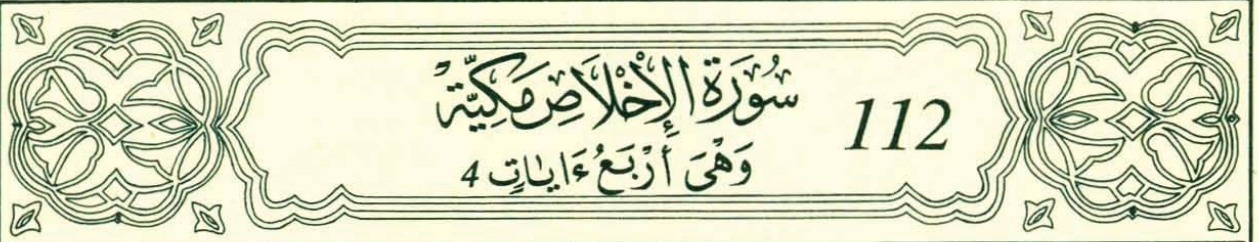 سُورَةُ الْإِخْلَاصِ مَكِّيَّةٌ 112
وَهْىَ أَرْبَعُ ءَايَاتٍ 4